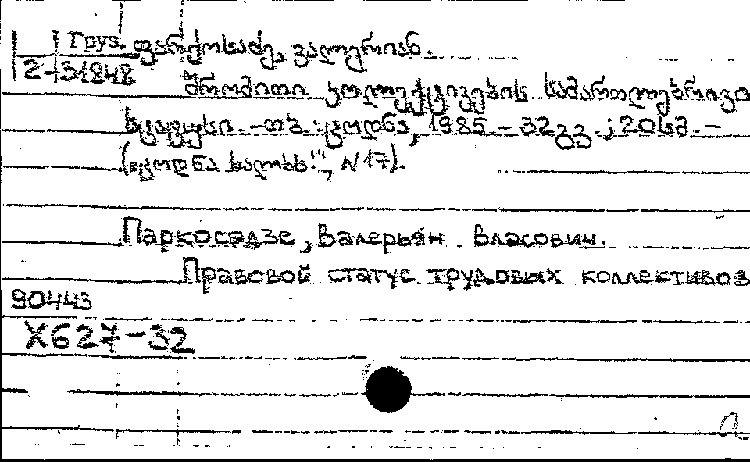 Груз. ფარქოსაძე, ვალერიან.
2-31848
შრომითი კოლექტივების სამართლებრივი
სტატუსი. -თბ.: ცოდნა, 1985. - 32გვ.; 20სმ. -
("ცოდნა ხალხს!", N17).
Паркосадзе, Валерьян Власович.
Правовой статус трудовых коллективов
90443
X627-32